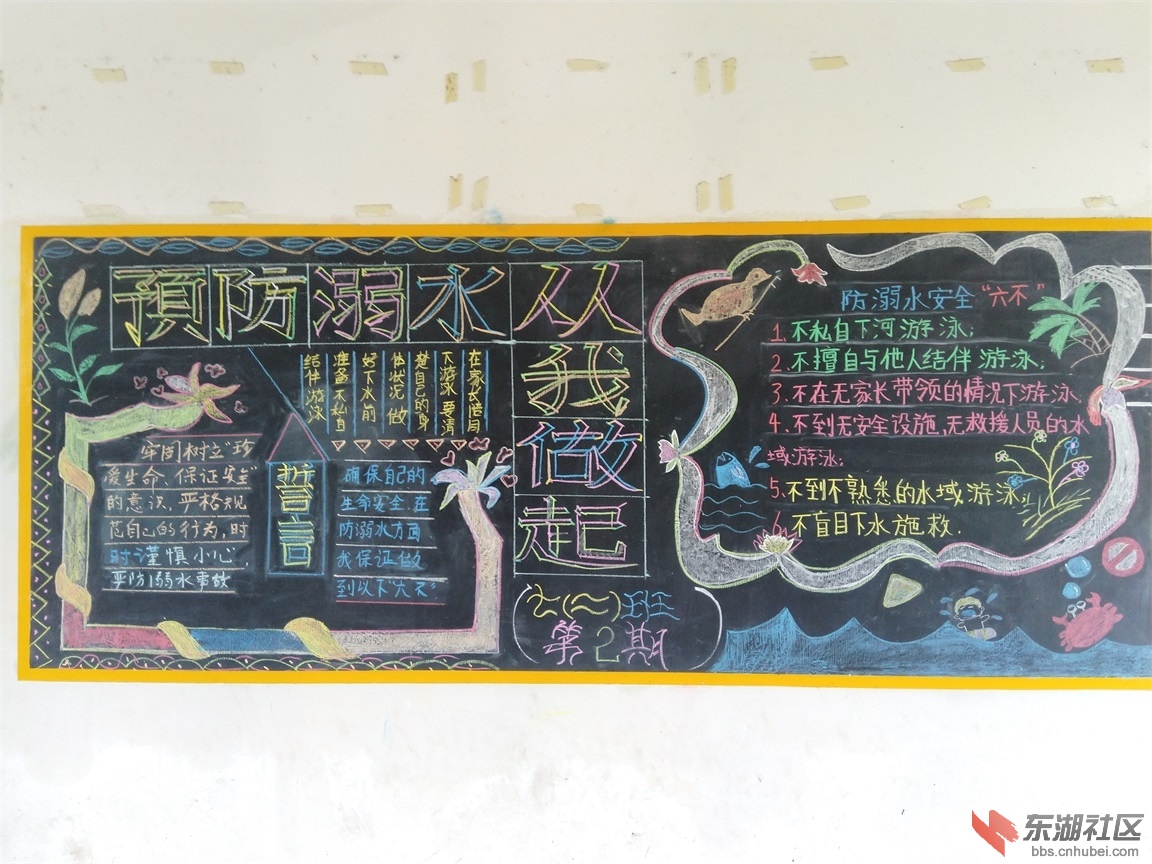 預防溺水
从我做起
在家长陪同
下游泳 要清
楚自己的身
体状况 做
好下水前
准备 不私自
结伴游泳
牢固树立“珍
爱生命、保证安全”
的意识、严格规
范自己的行为,时
时谨慎小心,
严防溺水事故
誓言
确保自己的
生命安全.在
防溺水方面
我保证做
到以下“六不”
七(二)班
第2期
防溺水安全“六不”
1.不私自下河游泳;
2.不擅自与他人结伴游泳;
3.不在无家长带领的情况下游泳.
4.不到无安全设施,无救援人员的水
域游泳;
5.不到不熟悉的水域游泳;
6.不盲目下水施救.
东湖社区
bbs.cnhubei.com